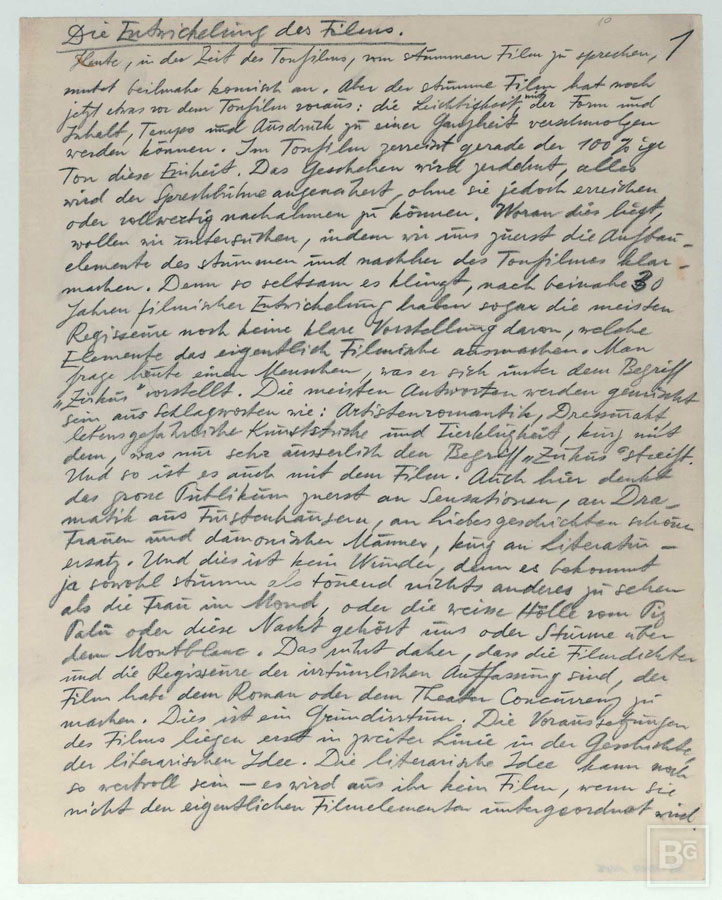 10
1
Die Entwickelung des Films.
Heute, in der Zeit des Tonfilms, vom stummen Film zu sprechen,
mutet beinahe komisch an. Aber der stumme Film hat noch
jetzt etwas vor dem Tonfilm voraus: die Leichtigkeit, mit der Form und
Inhalt, Tempo und Ausdruck zu einer Ganzheit verschmolzen
werden können. Im Tonfilm zerreisst gerade der 100% ige
Ton diese Einheit. Das Geschehen wird zerdehnt, alles
wird der Sprechbühne angenähert, ohne sie jedoch erreichen
oder vollwertig nachahmen zu können. Woran dies liegt,
wollen wir untersuchen, indem wir uns zuerst die Aufbau-
elemente des stummen und nachher des Tonfilmes klar-
machen. Denn so seltsam es klingt, nach beinahe 30
Jahren filmischer Entwickelung haben sogar die meisten
Regisseure noch keine klare Vorstellung davon, welche
Elemente das eigentlich Filmische ausmachen. Man
frage heute einen Menschen, was er sich unter dem Begriff
„Zirkus" vorstellt. Die meisten Antworten werden gemischt
sein aus Schlagworten wie: Artistenromantik, Dressurakt
lebensgefährliche Kunststücke und Tierklugheit, kurz mit
dem, was nur sehr äusserlich den Begriff „Zirkus" streift.
Und so ist es auch mit dem Film. Auch hier denkt
das grosse Publikum zuerst an Sensationen, an Dra-
matik aus Fürstenhäusern, an Liebesgeschichten schöner
Frauen und dämonischer Männer, kurz an Literatur-
ersatz. Und dies ist kein Wunder, denn es bekommt
ja sowohl stumm als tönend nichts anderes zu sehen
als die Frau im Mond, oder die weisse Hölle vom Piz
Palü oder diese Nacht gehört uns oder Stürme über
dem Montblanc. Das rührt daher, dass die Filmdichter
und die Regisseure der irrtümlichen Auffassung sind, der
Film habe dem Roman oder dem Theater Concurrenz zu
machen. Dies ist ein Grundirrtum. Die Voraussetzungen
des Films liegen erst in zweiter Linie in der Geschichte,
der literarischen Idee. Die literarische Idee kann noch
so wertvoll sein – es wird aus ihr kein Film, wenn sie
nicht den eigentlichen Filmelementen untergeordnet wird.
BG